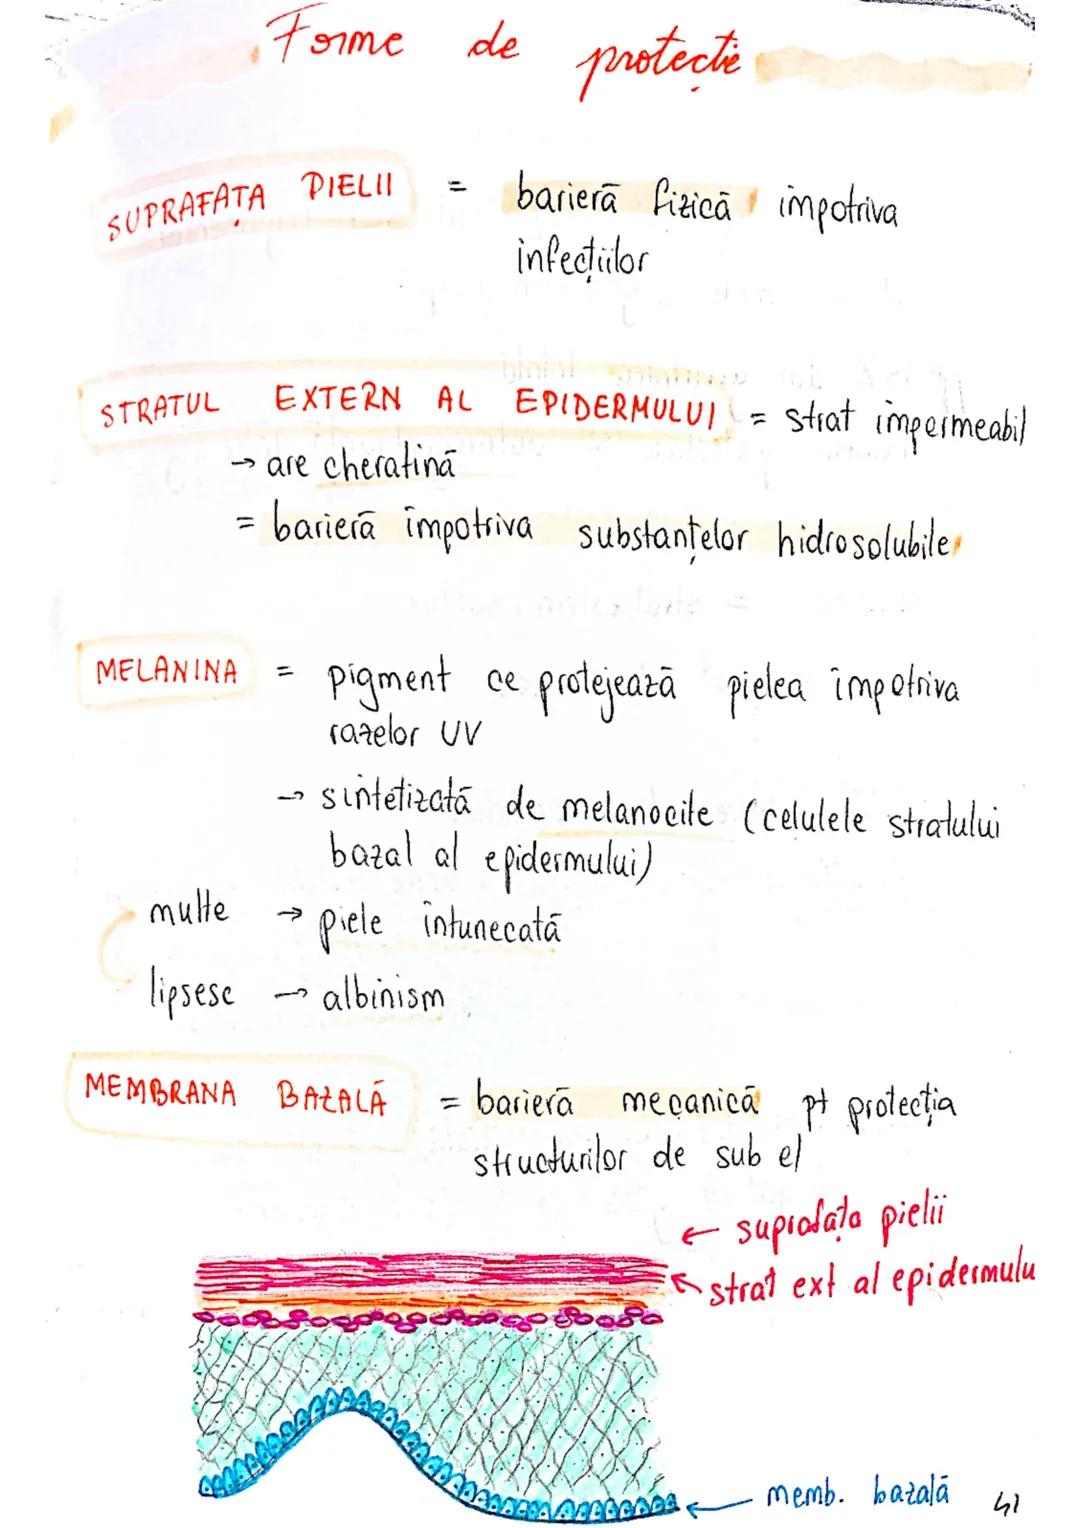 Forme de protecție
SUPRAFAȚA PIELII = barieră fizică împotriva
infecțiilor
STRATUL EXTERN AL EPIDERMULUI = strat impermeabil
→ are cheratină
= barieră împotriva substanțelor hidrosolubile
MELANINA = pigment ce protejează pielea împotriva
razelor UV
→ sintetizată de melanocite (celulele stratului
bazal al epidermului)
multe → piele întunecată
lipsesc → albinism
MEMBRANA BAZALĂ = barieră mecanică pt protecția
structurilor de sub el
← suprafața pielii
← strat ext al epidermulu
← memb. bazală
41